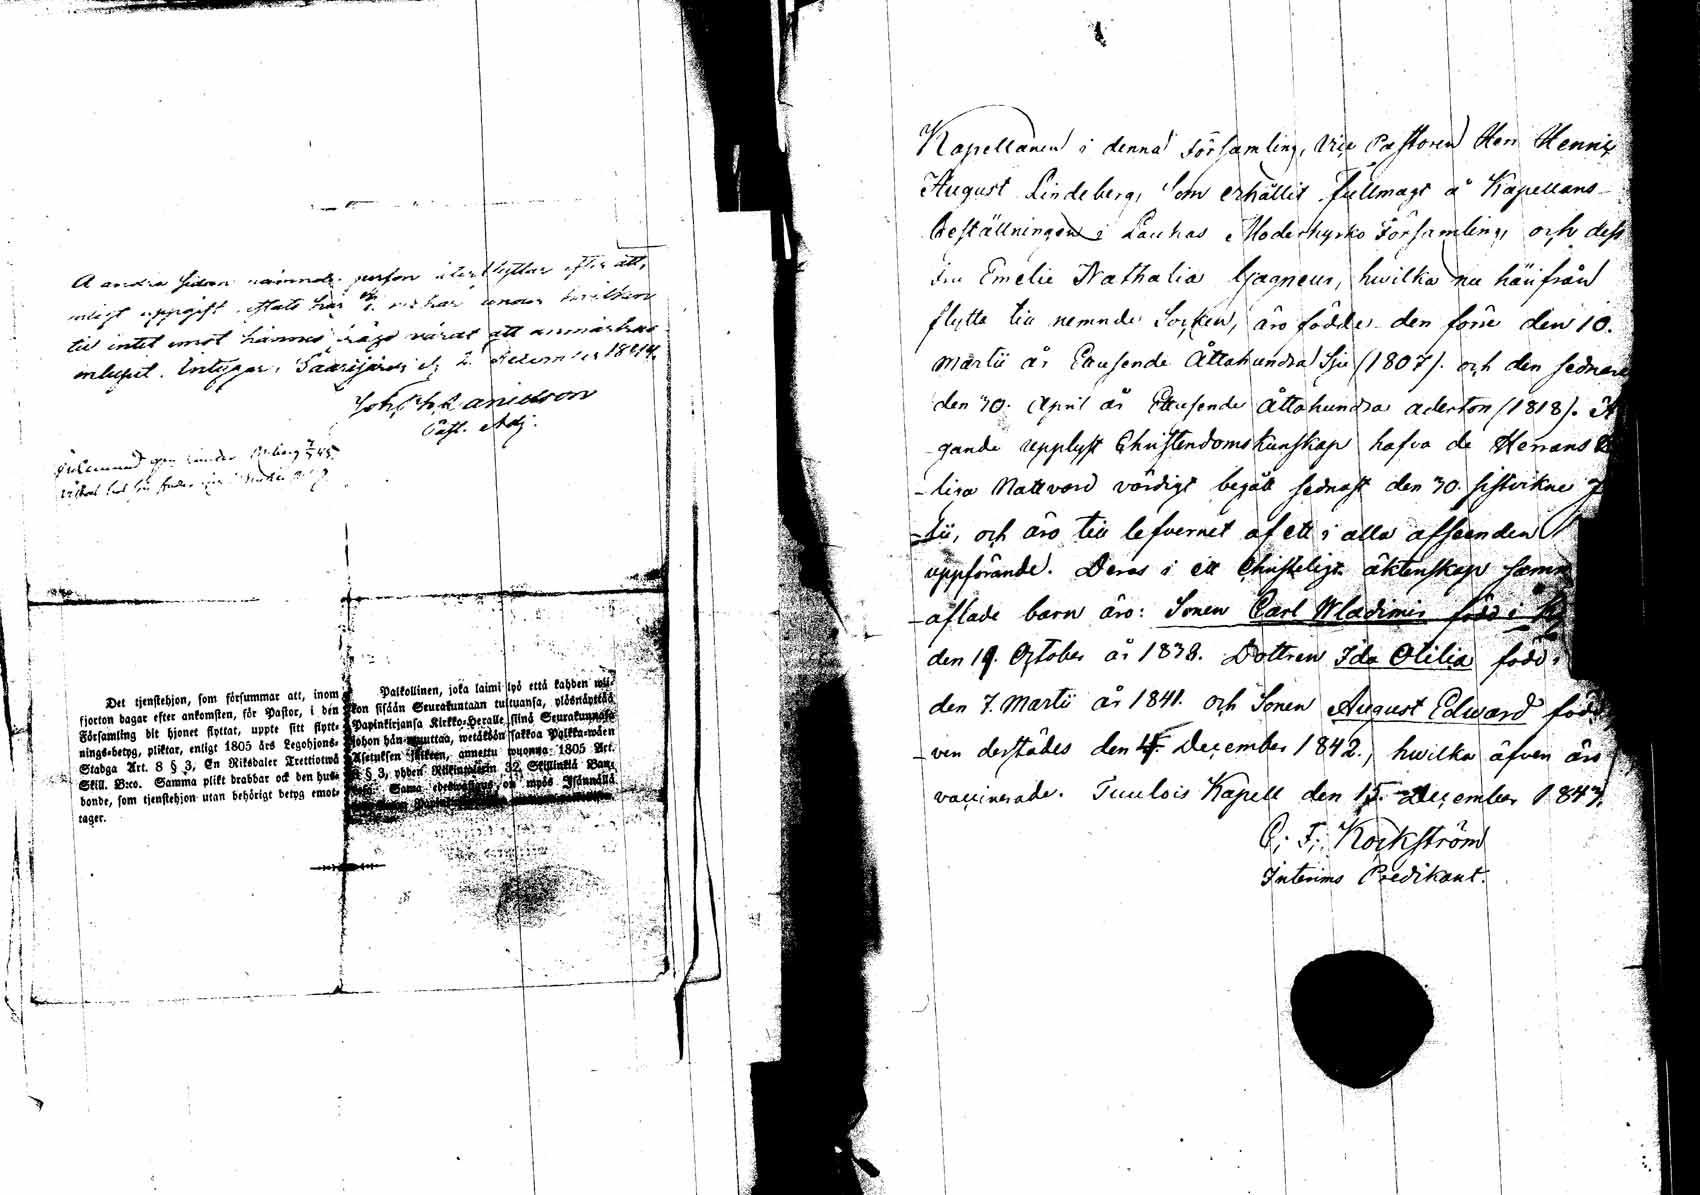 A andra sidan nämnde person återflyttar efter att,
enligt uppgift under hvilken
tid intet emot hännes varat att anmärkas
Intygar, Saarijärvi d. 2 December 1844.
Joh. Danielson
Past. Adj.
Det tjenstehjon, som försummar att, inom
fjorton dagar efter ankomsten, för Pastor, i den
Församling dit hjonet flyttat, uppte sitt flytt-
nings-betyg, pliktar, enligt 1805 års Legohjons-
Stadga Art. 8 § 3, En Riksdaler Trettiotwå
Skill. B:co. Samma plikt drabbar ock den hus-
bonde, som tjenstehjon utan behörigt betyg emot-
tager.
Palkollinen, joka laimi lyö että kahden wii-
kon sisään Seurakuntaan tultuansa, ylösnäyttää
Papinkirjansa Kirkko-Heralle siinä Seurakunnasa
johon hän muuttaa, wetäköön sakkoa Palkka-wäen
Asetuksen jälkeen, annettu wuonna 1805 Art.
8 § 3, yhden Riikintalarin 32 Skillinkiä Ban-
Sama edeswastaus on myös Isännällä
Kapellanen i denna Församling, Vice Pastoren Herr Henric
August Lindeberg, som erhållit fullmagt å Kapellans-
beställningen i Laukas Moderkyrko Församling, och dess
fru Emelie Nathalia Gagneur, hwilka nu härífrån
flytta till nemnde Socken, äro födde den förre den 10.
Martii år Ettusende Åttahundra Sju (1807). och den sednare
den 30. April år Ettusende Åttahundra aderton (1818). Ä
gande upplyst Christendomskunskap hafva de Herrans
-liga Nattvard värdigt begått sednast den 30. sistvikne J
-lii, och äro till lefvernet af ett i alla afseenden
uppförande. Deras i ett Christeligt äktenskap samm
-aflade barn äro: Sonen Carl Wladimir född i
den 19. October år 1838. Dottren Ida Otilia född i
den 7. Martii år 1841. och Sonen August Edward född
-ven derstädes den 4. December 1842., hwilka äfven äro
vaccinerade. Tuulois Kapell den 15. December 1843.
C. F. Kockström
Interims Predikant.